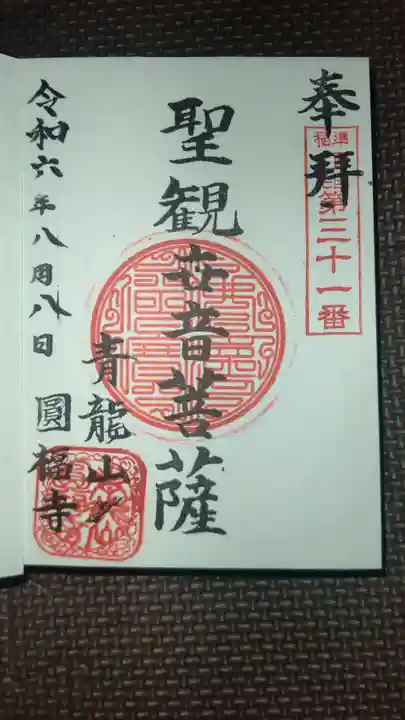 奉拜
準
第三十一番
聖観世音菩薩
青龍山
圓福寺
令和六年八月八日